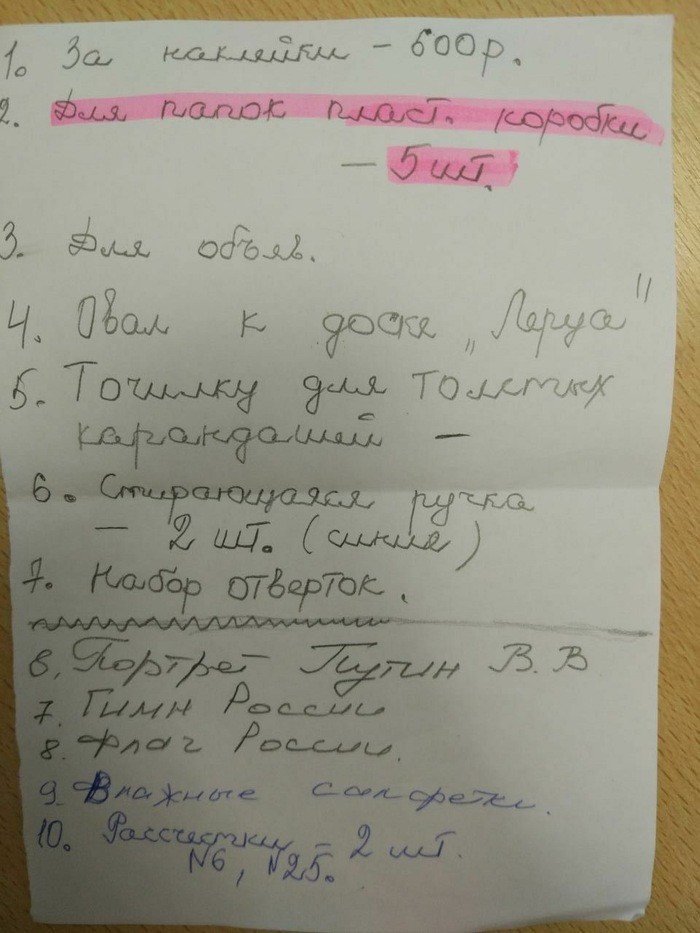 1. За наклейки – 600р.
2. Для папок пласт. коробки
– 5 шт.
3. Для объяв.
4. Овал к доске „Леруа"
5. Точилку для толстых
карандашей –
6. Стирающаяся ручка
– 2 шт. (синие)
7. Набор отверток.
6. Портрет Путин В.В
7. Гимн России
8. Флаг России.
9. Влажные салфетки.
10. Рассчестки – 2 шт.
N6, N25.